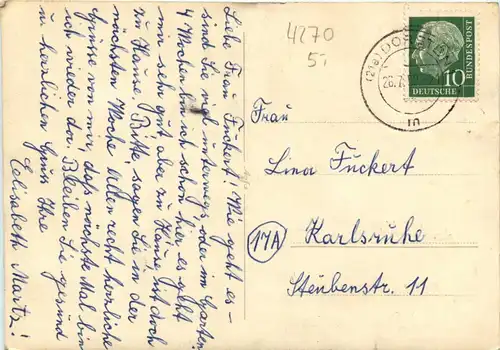 Liebe Frau Fuckert! Wie geht es –
sind Sie viel unterwegs oder im Garten
4 Wochen bin ich schon hier es geht
mir sehr gut aber zu Hause ist doch
zu Hause. Bitte sagen Sie in der
nächsten Woche allen recht herzliche
Grüsse von mir, dass nächste Mal bin
ich wieder da. Bleiben Sie gesund
u herzlichen Gruss Ihre
Elisabeth Martz!
4270
5.-
(21a)
26.7.
10
DEUTSCHE
BUNDESPOST
Frau
Lina Fuckert
(17A) Karlsruhe
Steubenstr. 11